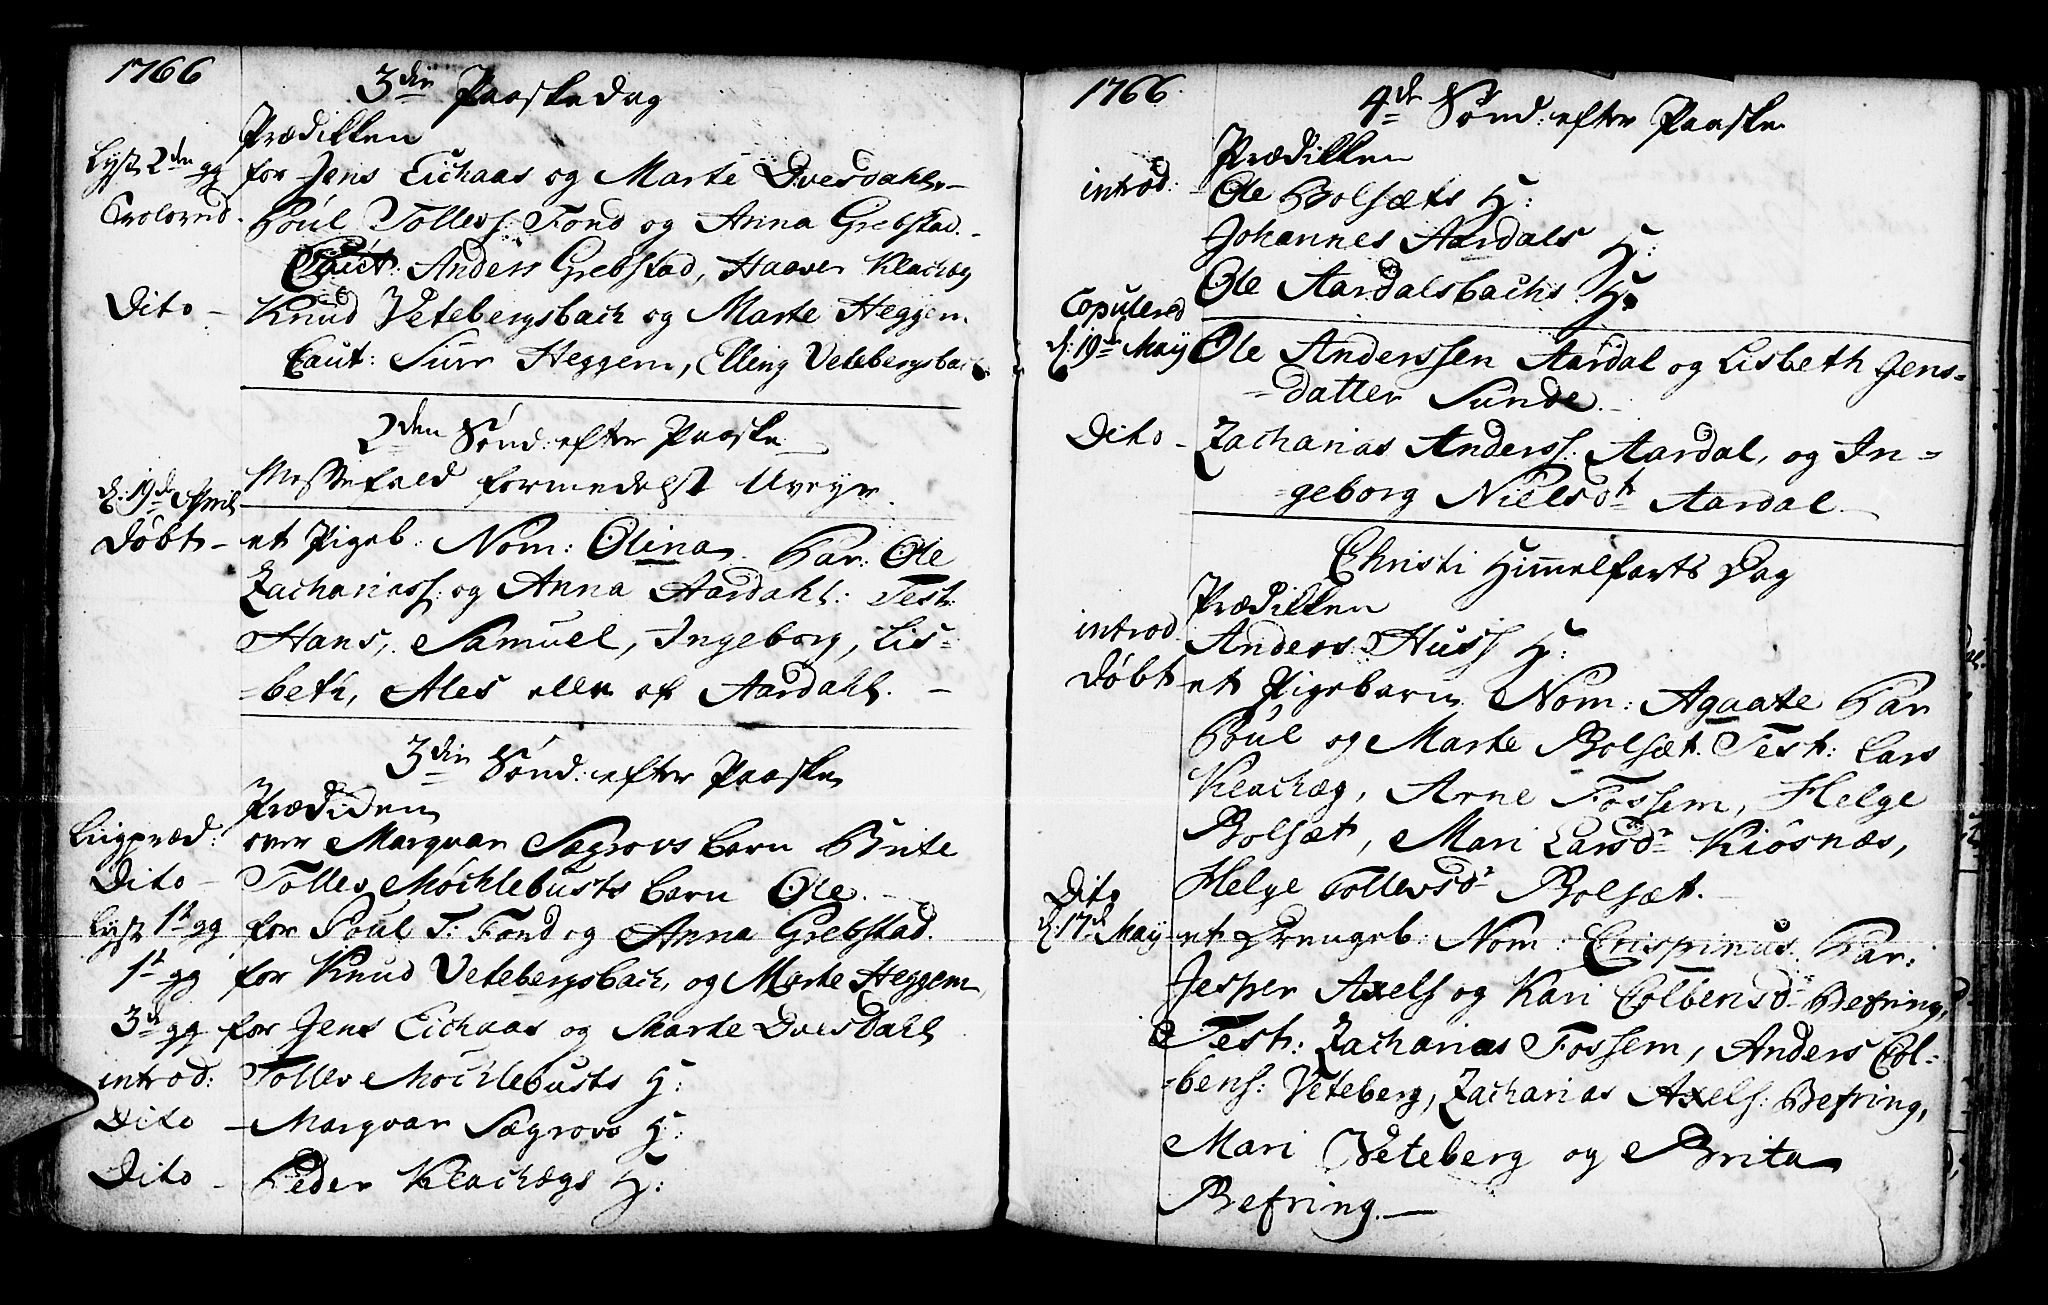 1766
3die Paaskedag
Prædikken
Lyst 2den gg for Jens Eichaas og Marte Dvesdahl
Troloved. Poul Tollevs: Fond og Anna Grebstad.
Caut: Anders Grebstad, Haaver Klachæg
Dito – Knud Vetebergsbach og Marte Heggem
Caut: Siur Heggem, Elling Vetebergsbach
2den Sønd: efter Paaske
Messefald formedelst Uveyr.
d: 19de April
Døbt – et Pigeb: Nom: Olina. Par: Ole
Zachariass: og Anna Aardahl: Test:
Hans, Samuel, Ingeborg, Lis-
-beth, Ales alle af Aardahl. –
3die Sønd: efter Paaske
Prædiken
Liigpræd: over Marqvar Sægrovs barn Brite
Dito – Tollev Møchlebusts barn Ole. –
Lyst 1ste gg for Poul T: Fond og Anna Grebstad.
1ste gg for Knud Vetebergsbach, og Marte Heggem
3de gg for Jens Eichaas og Marte Dvesdahl
introd: Tollev Møchlebusts H:
Dito – Marqvar Sægrovs H:
Dito – Peder Klachægs H:
1766.
4de Sønd: efter Paaske
Prædikken
introd: – Ole Bolsæts H:
Johannes Aardals H:
Ole Aardalsbachs H:
Copulered
d: 19de Maij Ole Anderssen Aardal og Lisbeth Jens-
-datter Sunde. –
Dito – Zacharias Anderss: Aardal, og In-
-geborg Nielsdtr Aardal –
Christi Himmelfarts Dag
Prædikken
introd Anders Huss H:
Døbt et Pigebarn Nom: Agaate Par
Poul og Marte Bolsæt. Test: Lars
Klachæg, Arne Fossem, Helge
Bolsæt, Mari Larsdr Kiøsnæs,
Helge Tollevsdr Bolsæt. –
Dito
d: 17de Maij – et Drengeb: Nom: Crispinus. Par:
Jesper Axels og Kari Colbensdr Befring,
Test: Zacharias Fossem, Anders Col-
-bens: Veteberg, Zacharias Axels: Befring,
Mari Veteberg og Brita
Befring. –